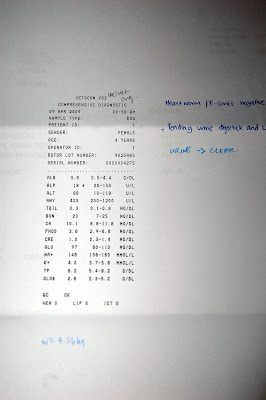 VETSCAN VS2
Velvet
COMPREHENSIVE DIAGNOSTIC
09 APR 2009 09:58 AM
SAMPLE TYPE: DOG
PATIENT ID: 1
GENDER: FEMALE
AGE: 4 YEARS
OPERATOR ID: 1
ROTOR LOT NUMBER: 9025AB5
SERIAL NUMBER: 0000V04275
ALB 3.8 2.5-4.4 G/DL
ALP 18 * 20-150 U/L
ALT 80 10-118 U/L
AMY 423 200-1200 U/L
TBIL 0.3 0.1-0.6 MG/DL
BUN 23 7-25 MG/DL
CA 10.1 8.6-11.8 MG/DL
PHOS 3.8 2.9-6.6 MG/DL
CRE 1.0 0.3-1.4 MG/DL
GLU 97 60-110 MG/DL
NA+ 148 138-160 MMOL/L
K+ 4.0 3.7-5.8 MMOL/L
TP 6.2 5.4-8.2 G/DL
GLOB 2.6 2.3-5.2 G/DL
QC OK
HEM 0 LIP 0 ICT 0
Heartworm /E. canis negative
- Pending urine dipstick and
URINE -> CLEAR